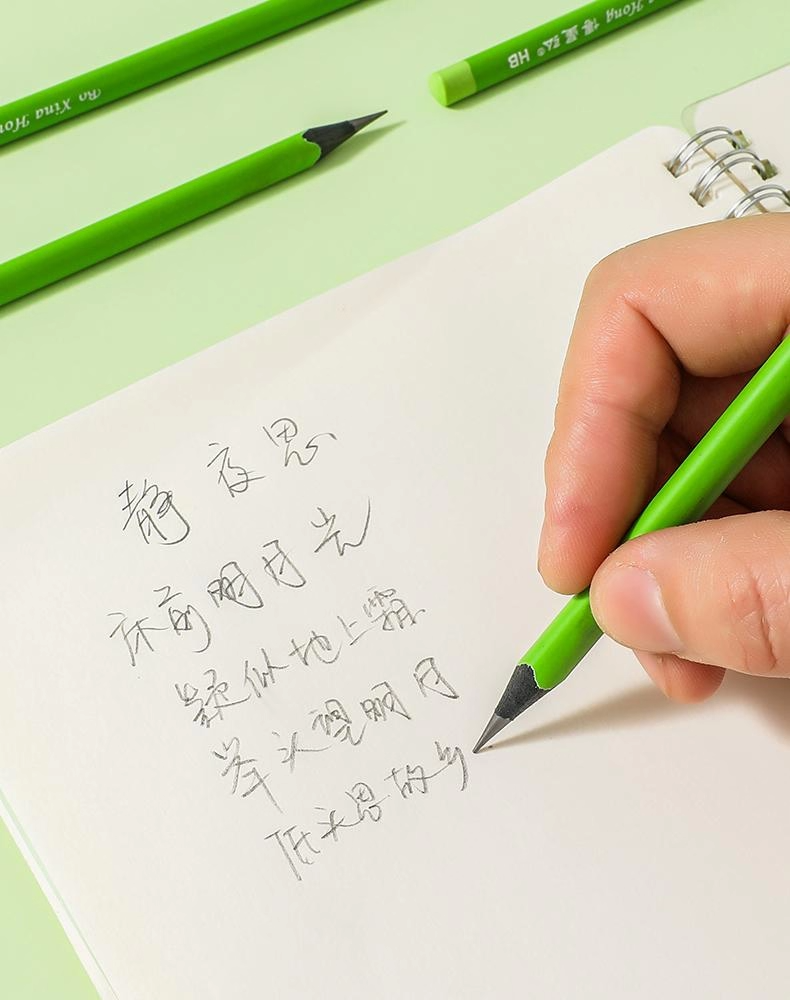 Bo Xing Hon
Hong 博星弘® HB
静夜思
床前明月光
疑似地上霜
举头望明月
低头思故乡